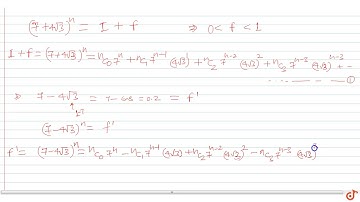 (7+4√3)^n = I + f ⇒ 0 < f < 1
I + f = (7+4√3)^n = ⁿC₀ 7^n + ⁿC₁ 7^{n-1} (4√3) + ⁿC₂ 7^{n-2} (4√3)² + ⁿC₃ 7^{n-3} (4√3)³ + - -
------ ①
7 - 4√3 = 7 - 6.8 = 0.2 = f'
(7-4√3)^n = f'
f' = (7-4√3)^n = ⁿC₀ 7^n - ⁿC₁ 7^{n-1} (4√3) + ⁿC₂ 7^{n-2} (4√3)² - ⁿC₃ 7^{n-3} (4√3)³